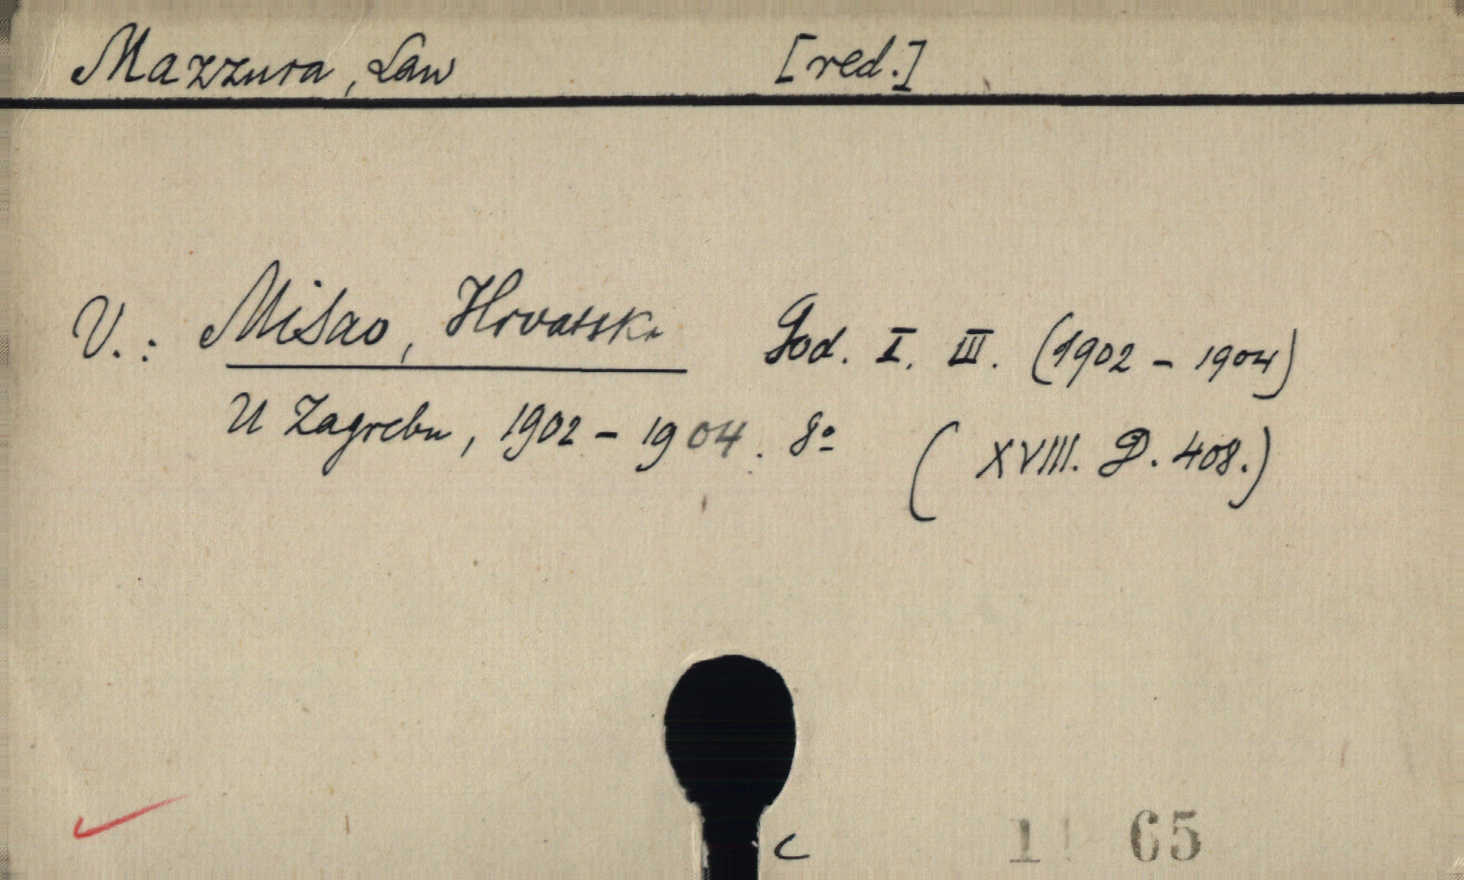 Mazzura, Law [red.]
V.: Misao, Hrvatska God. I. III. (1902 - 1904)
U Zagrebu, 1902 - 1904. 8º (XVIII. D. 408.)
c
65